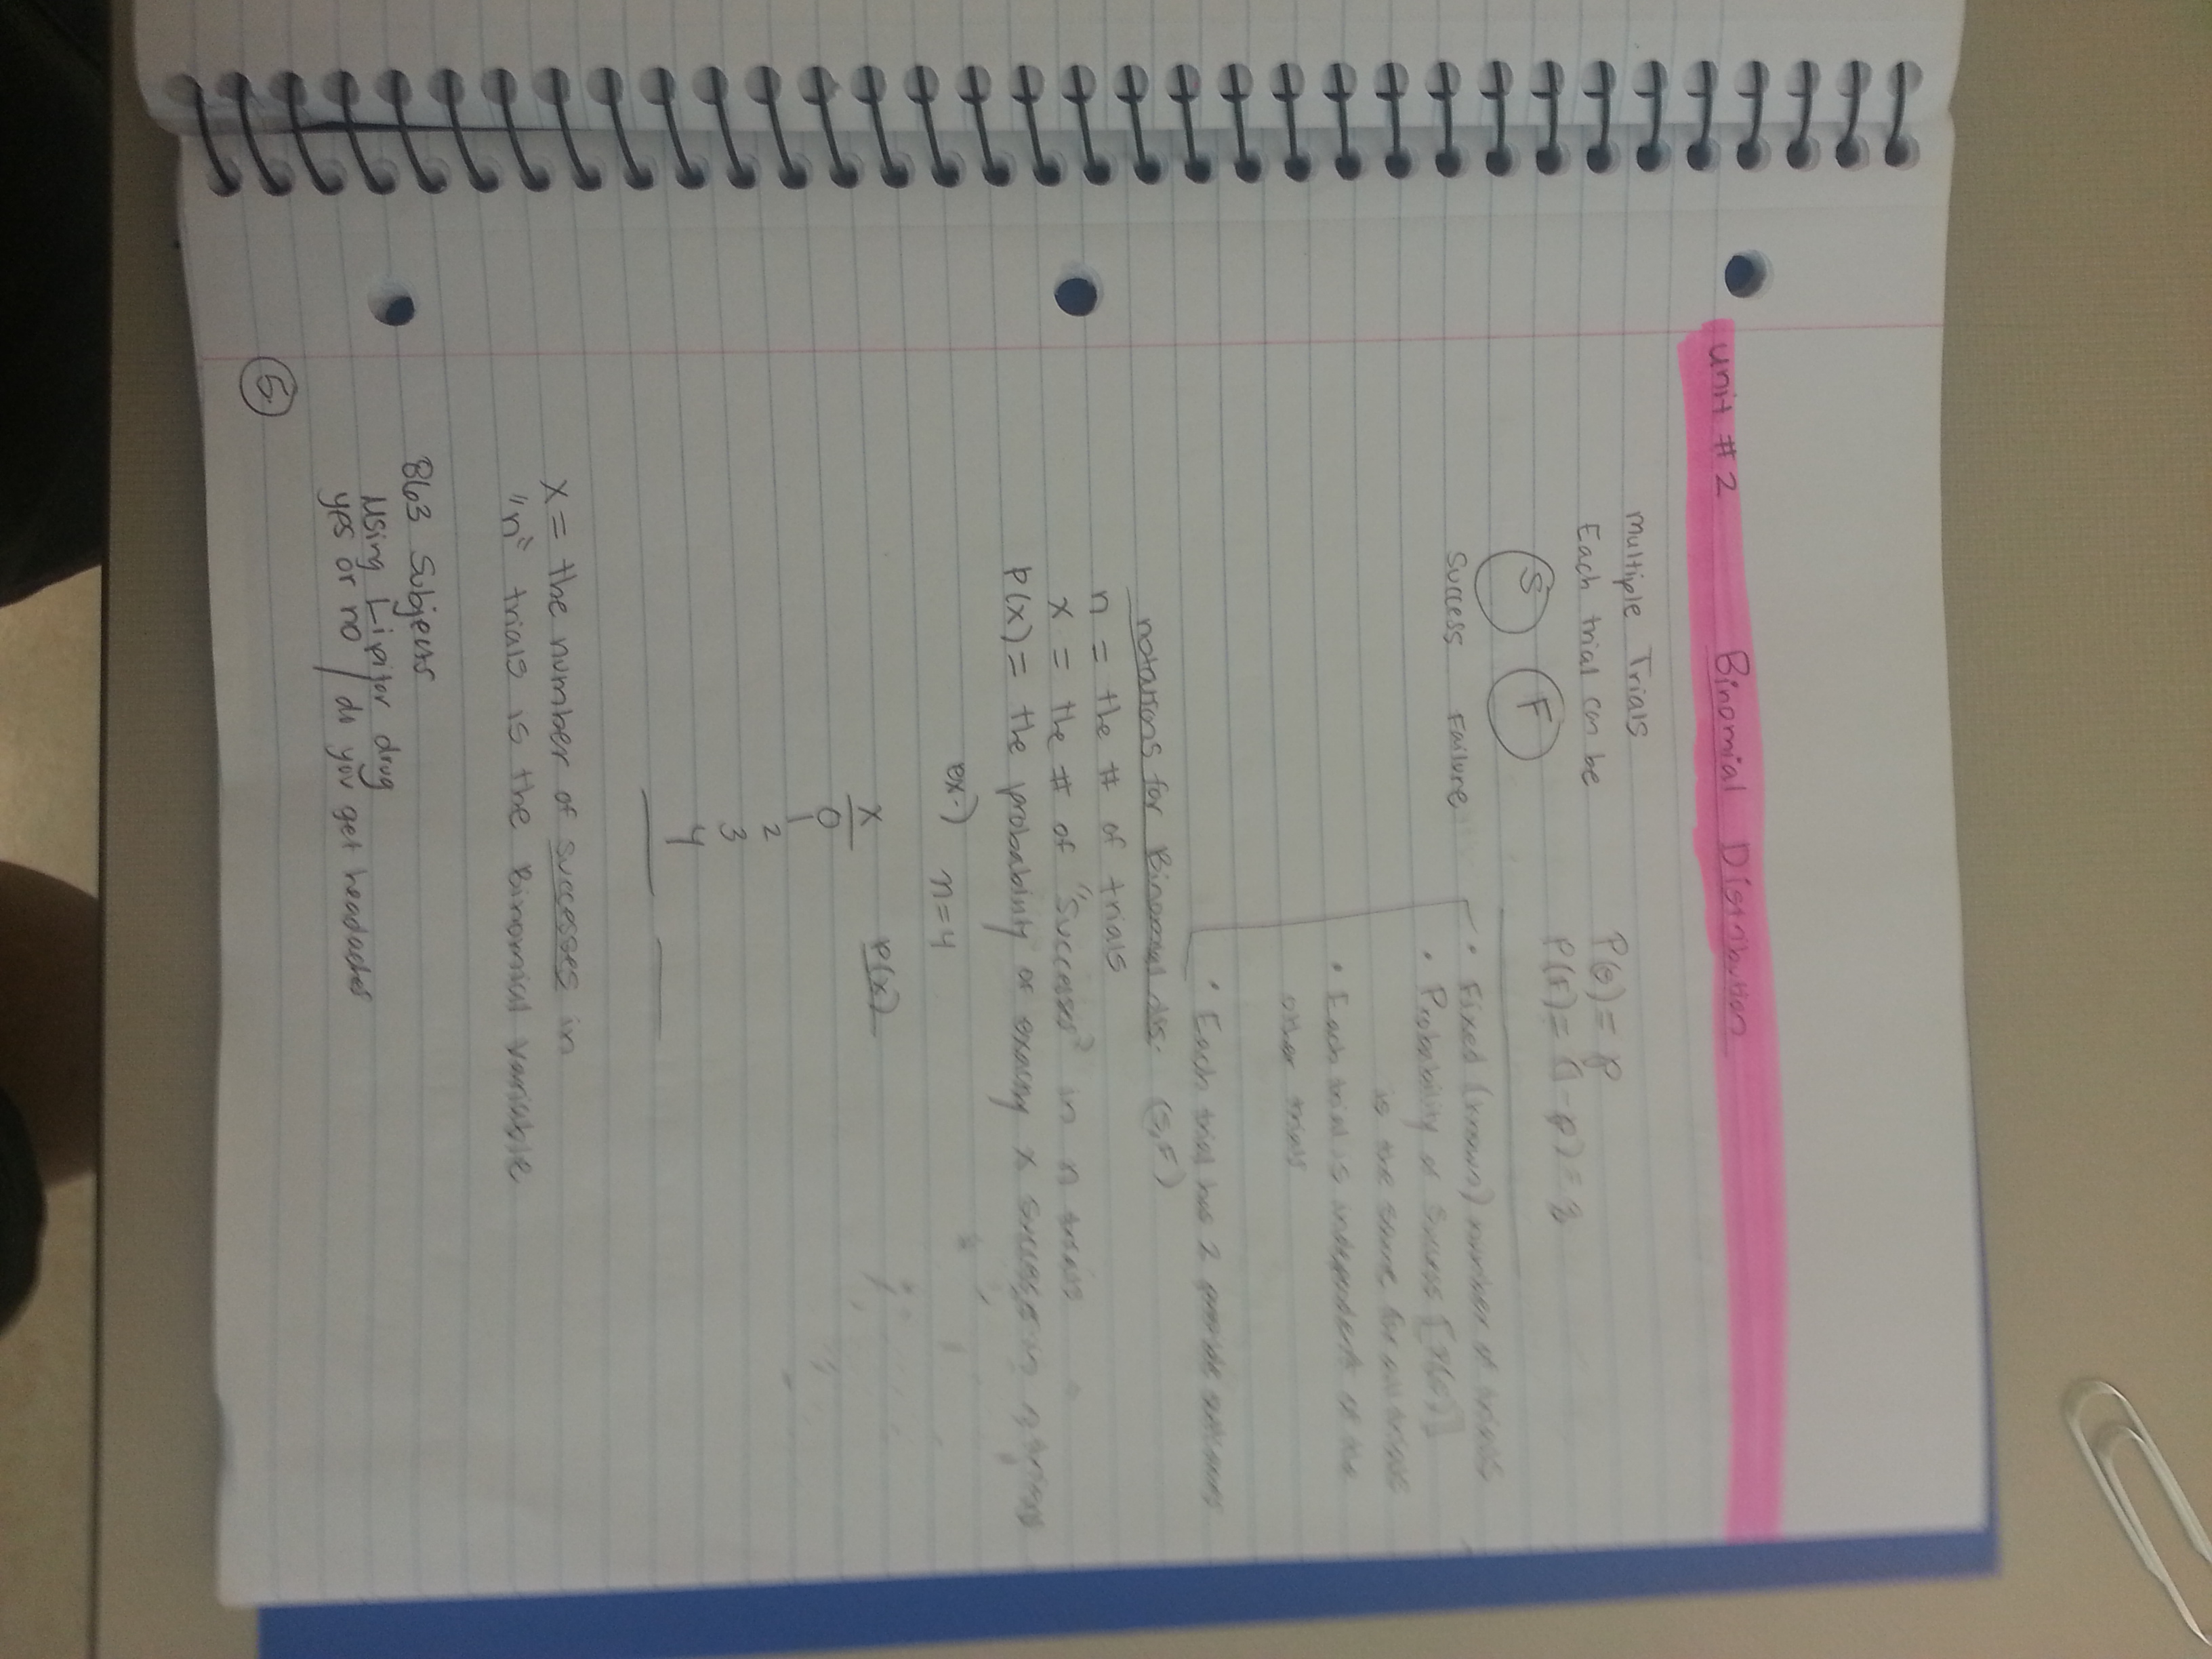 unit #2 Binomial Distribution
multiple Trials
Each trial can be
S F
Success Failure
P(s) = p
P(F) = (1-p) = q
• Fixed (known) number of trials
• Probability of Success [P(s)]
is the same for all trials
• Each trial is independent of the
other trials
• Each trial has 2 possible outcomes
(S,F)
notations for Binomial dis.
n = the # of trials
x = the # of "Successes" in n trials
P(x) = the probability of exactly x success in n trials
ex.) n=4
x P(x)
0
1
2
3
4
X = the number of successes in
"n" trials is the Binomial variable
863 Subjects
Using Lipitor drug
yes or no / do you get headaches
5